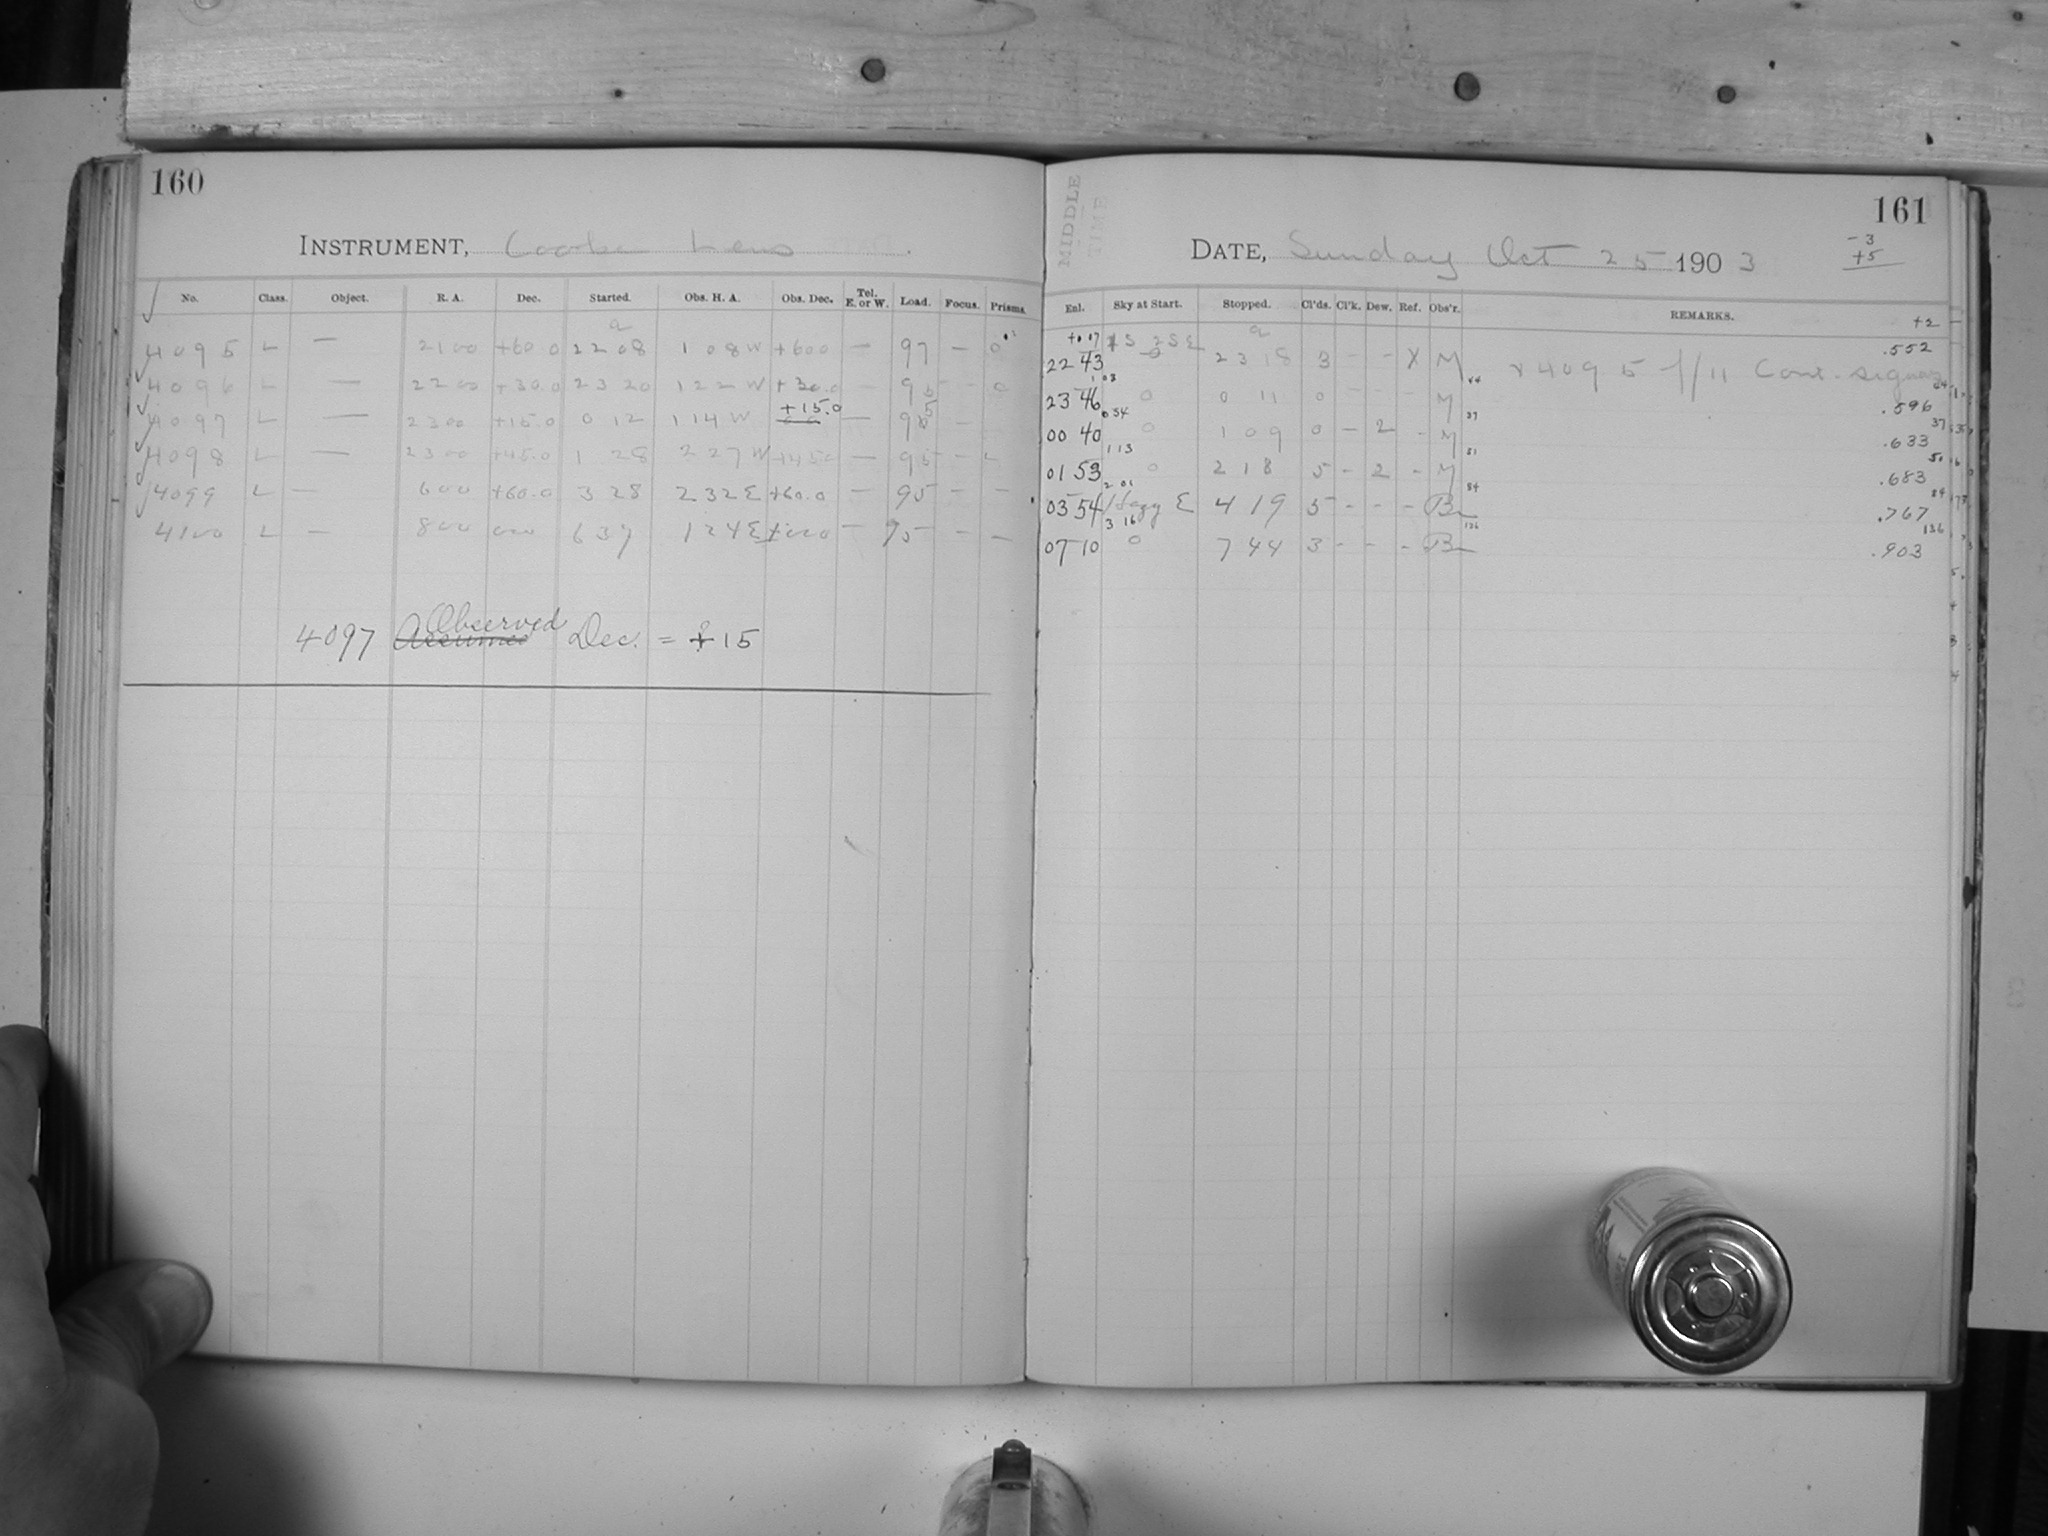 160
INSTRUMENT, Cooke Lens
No. Class. Object. R. A. Dec. Started. Obs. H. A. Obs. Dec. Tel. E. or W. Load. Focus. Prisms.
4095 L — 2100 +60.0 22 08 1 08 W +600 — 97 — 0
4096 L — 2200 +30.0 23 20 1 22 W +30.0 — 95 — 0
+15.0
4097 L — 2300 +15.0 0 12 1 14 W — 95 —
4098 L — 2300 +45.0 1 28 2 27 W +450 — 95 - L
4099 L — 600 +60.0 3 28 2 32 E +60.0 — 95 - —
4100 L — 800 000 6 37 1 24 E +000 — 95 - —
Observed
4097 Assumed Dec. = +15
161
MIDDLE
TIME
DATE, Sunday Oct 25 1903
-3
+5
+2
Enl. Sky at Start. Stopped. Cl'ds. Cl'k. Dew. Ref. Obs'r. REMARKS.
+0.07
22 43 23 18 3 - - X M x 4095 f/11 Cont. .552
1 03
23 46 0 0 11 0 - - - M .596
0 54
00 40 0 1 09 0 - 2 - M .633
1 13
01 53 0 2 18 5 - 2 - M .683
2 01
03 54 Hazy E 4 19 5 - - - B .767
3 16
07 10 0 7 44 3 - - - B .903